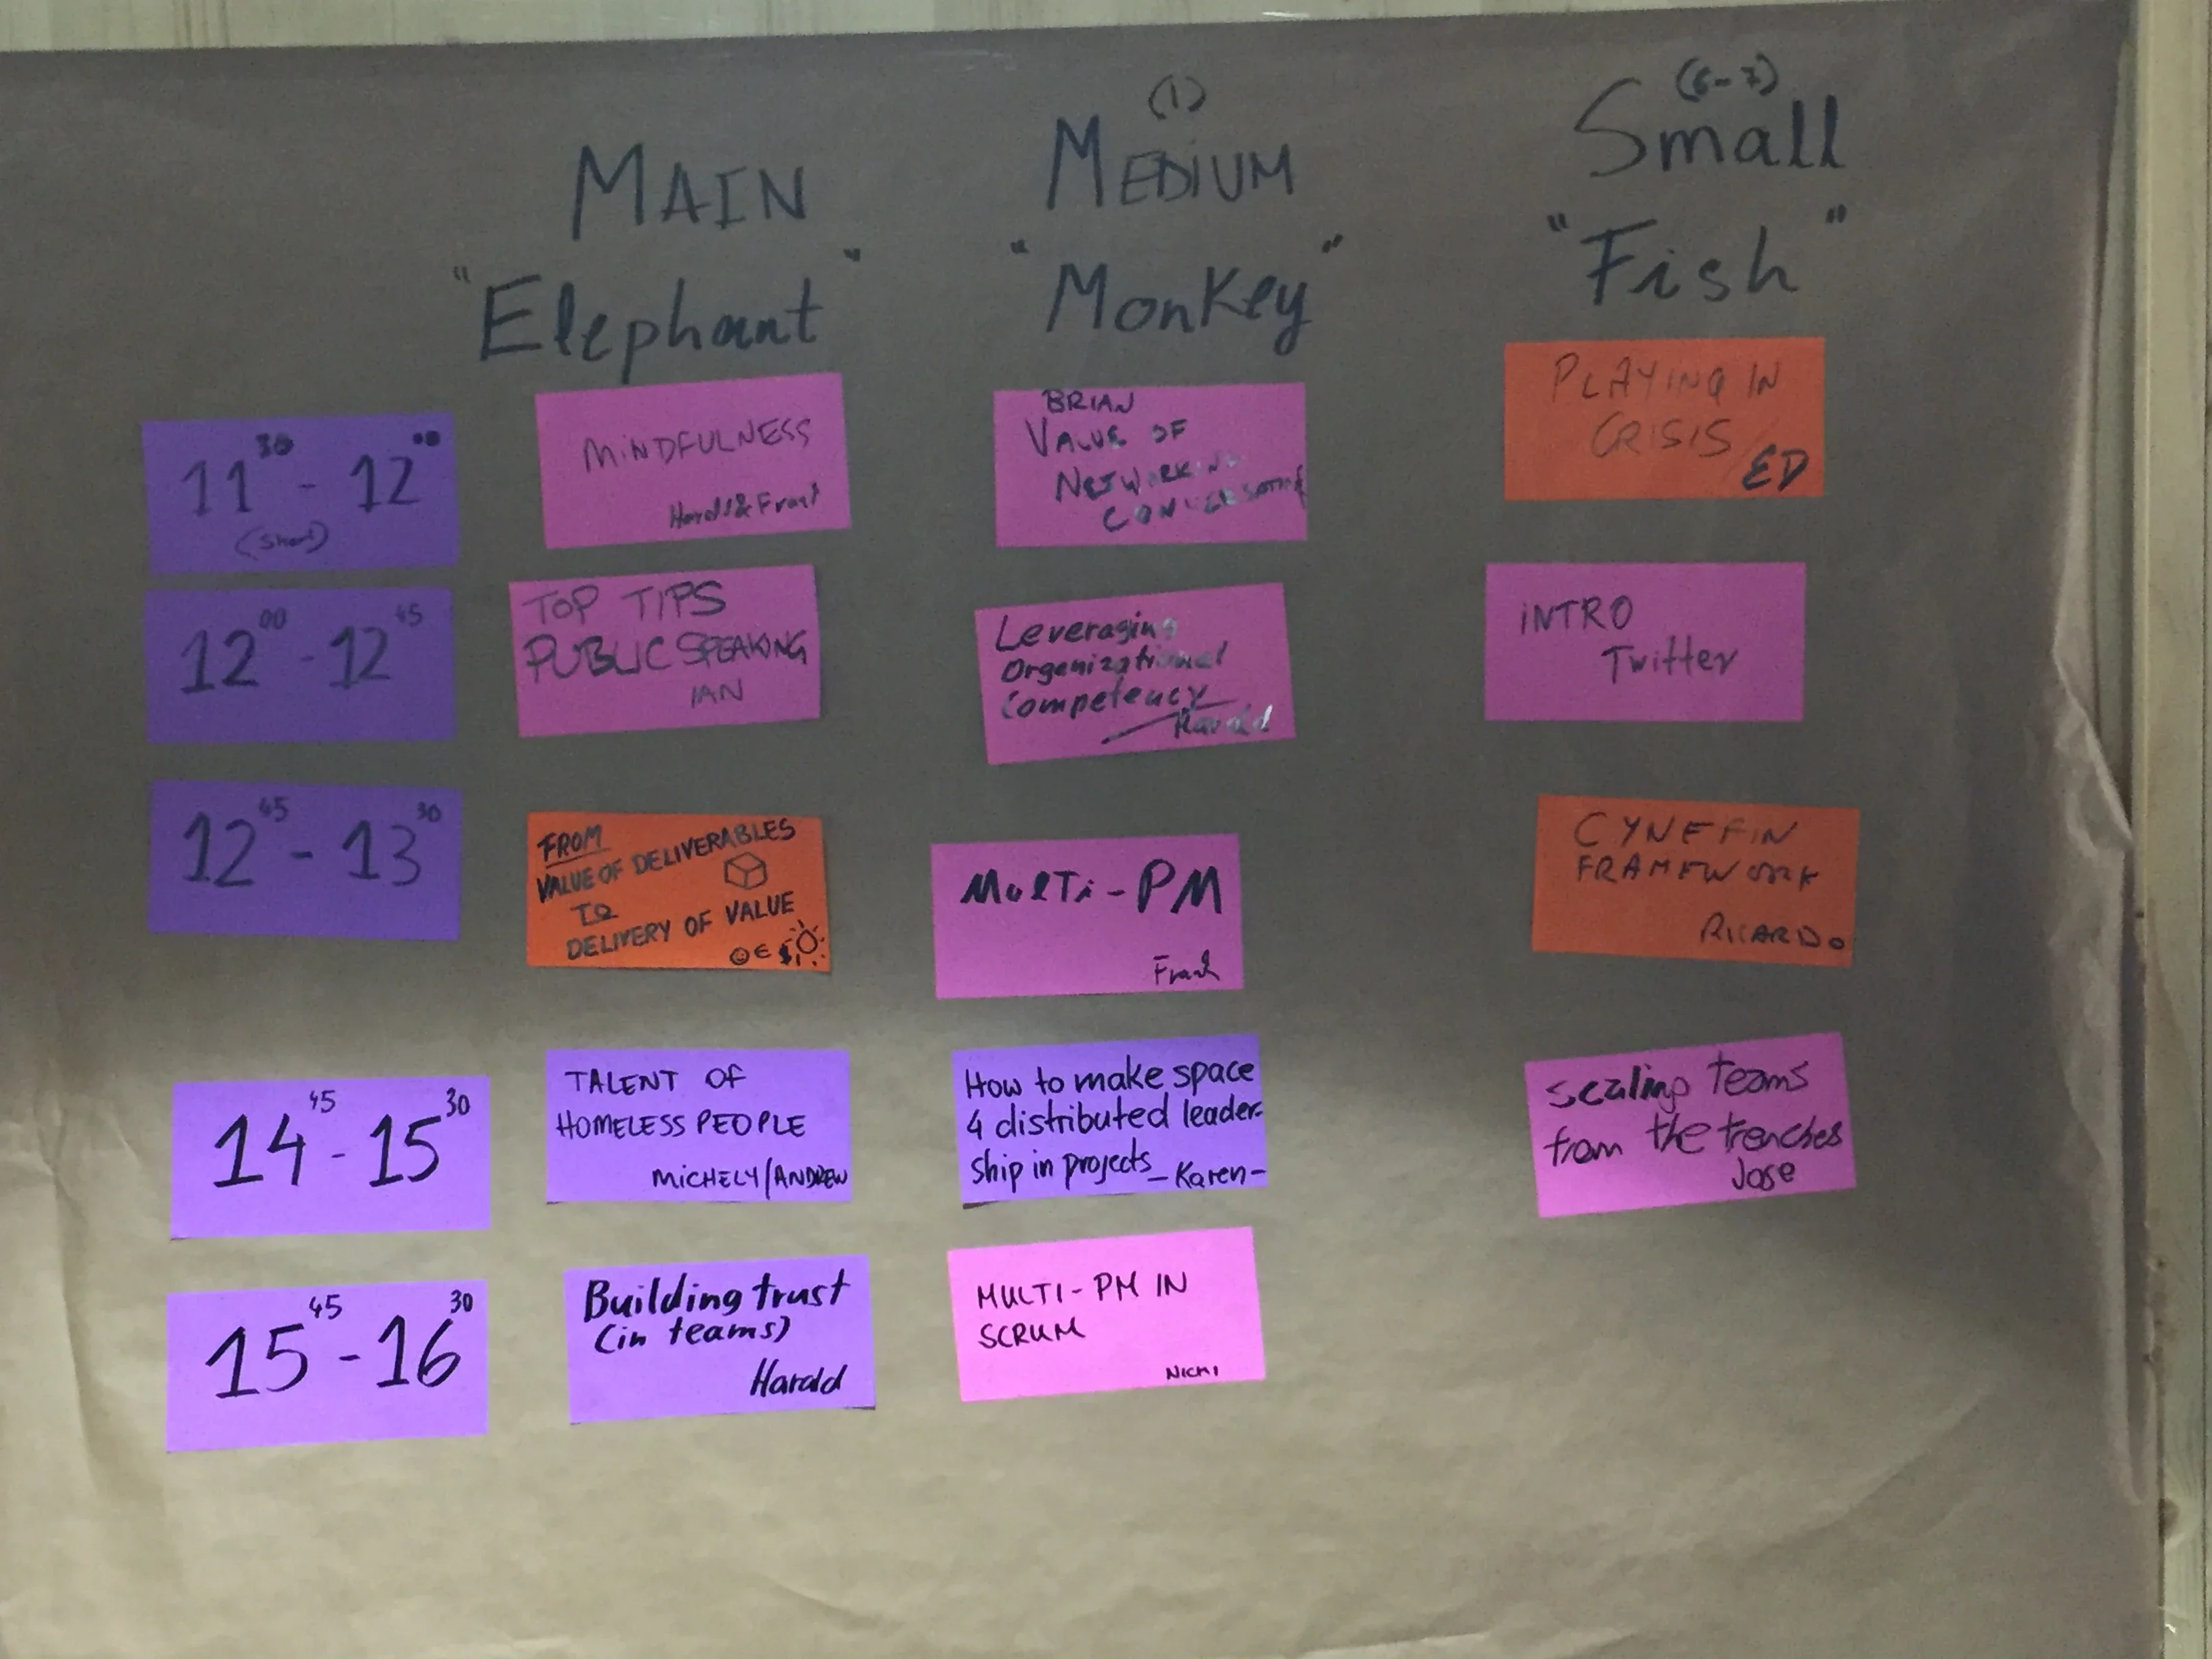 MAIN
"Elephant"
(1)
MEDIUM
"Monkey"
(6-7)
Small
"Fish"
11 30 - 12 00
(short)
MINDFULNESS
BRIAN
VALUE OF
NETWORKING
PLAYING IN
CRISIS / ED
12 00 - 12 45
TOP TIPS
PUBLIC SPEAKING
IAN
Leveraging
Organizational
Competency
Harald
INTRO
Twitter
12 45 - 13 30
FROM
VALUE OF DELIVERABLES
TO
DELIVERY OF VALUE
€ $
Multi-PM
Frank
CYNEFIN
FRAMEWORK
RICARDO
14 45 - 15 30
TALENT OF
HOMELESS PEOPLE
MICHELY/ANDREW
How to make space
4 distributed leader-
ship in projects - Karen -
scaling teams
from the trenches
Jose
15 45 - 16 30
Building trust
(in teams)
Harald
MULTI-PM IN
SCRUM